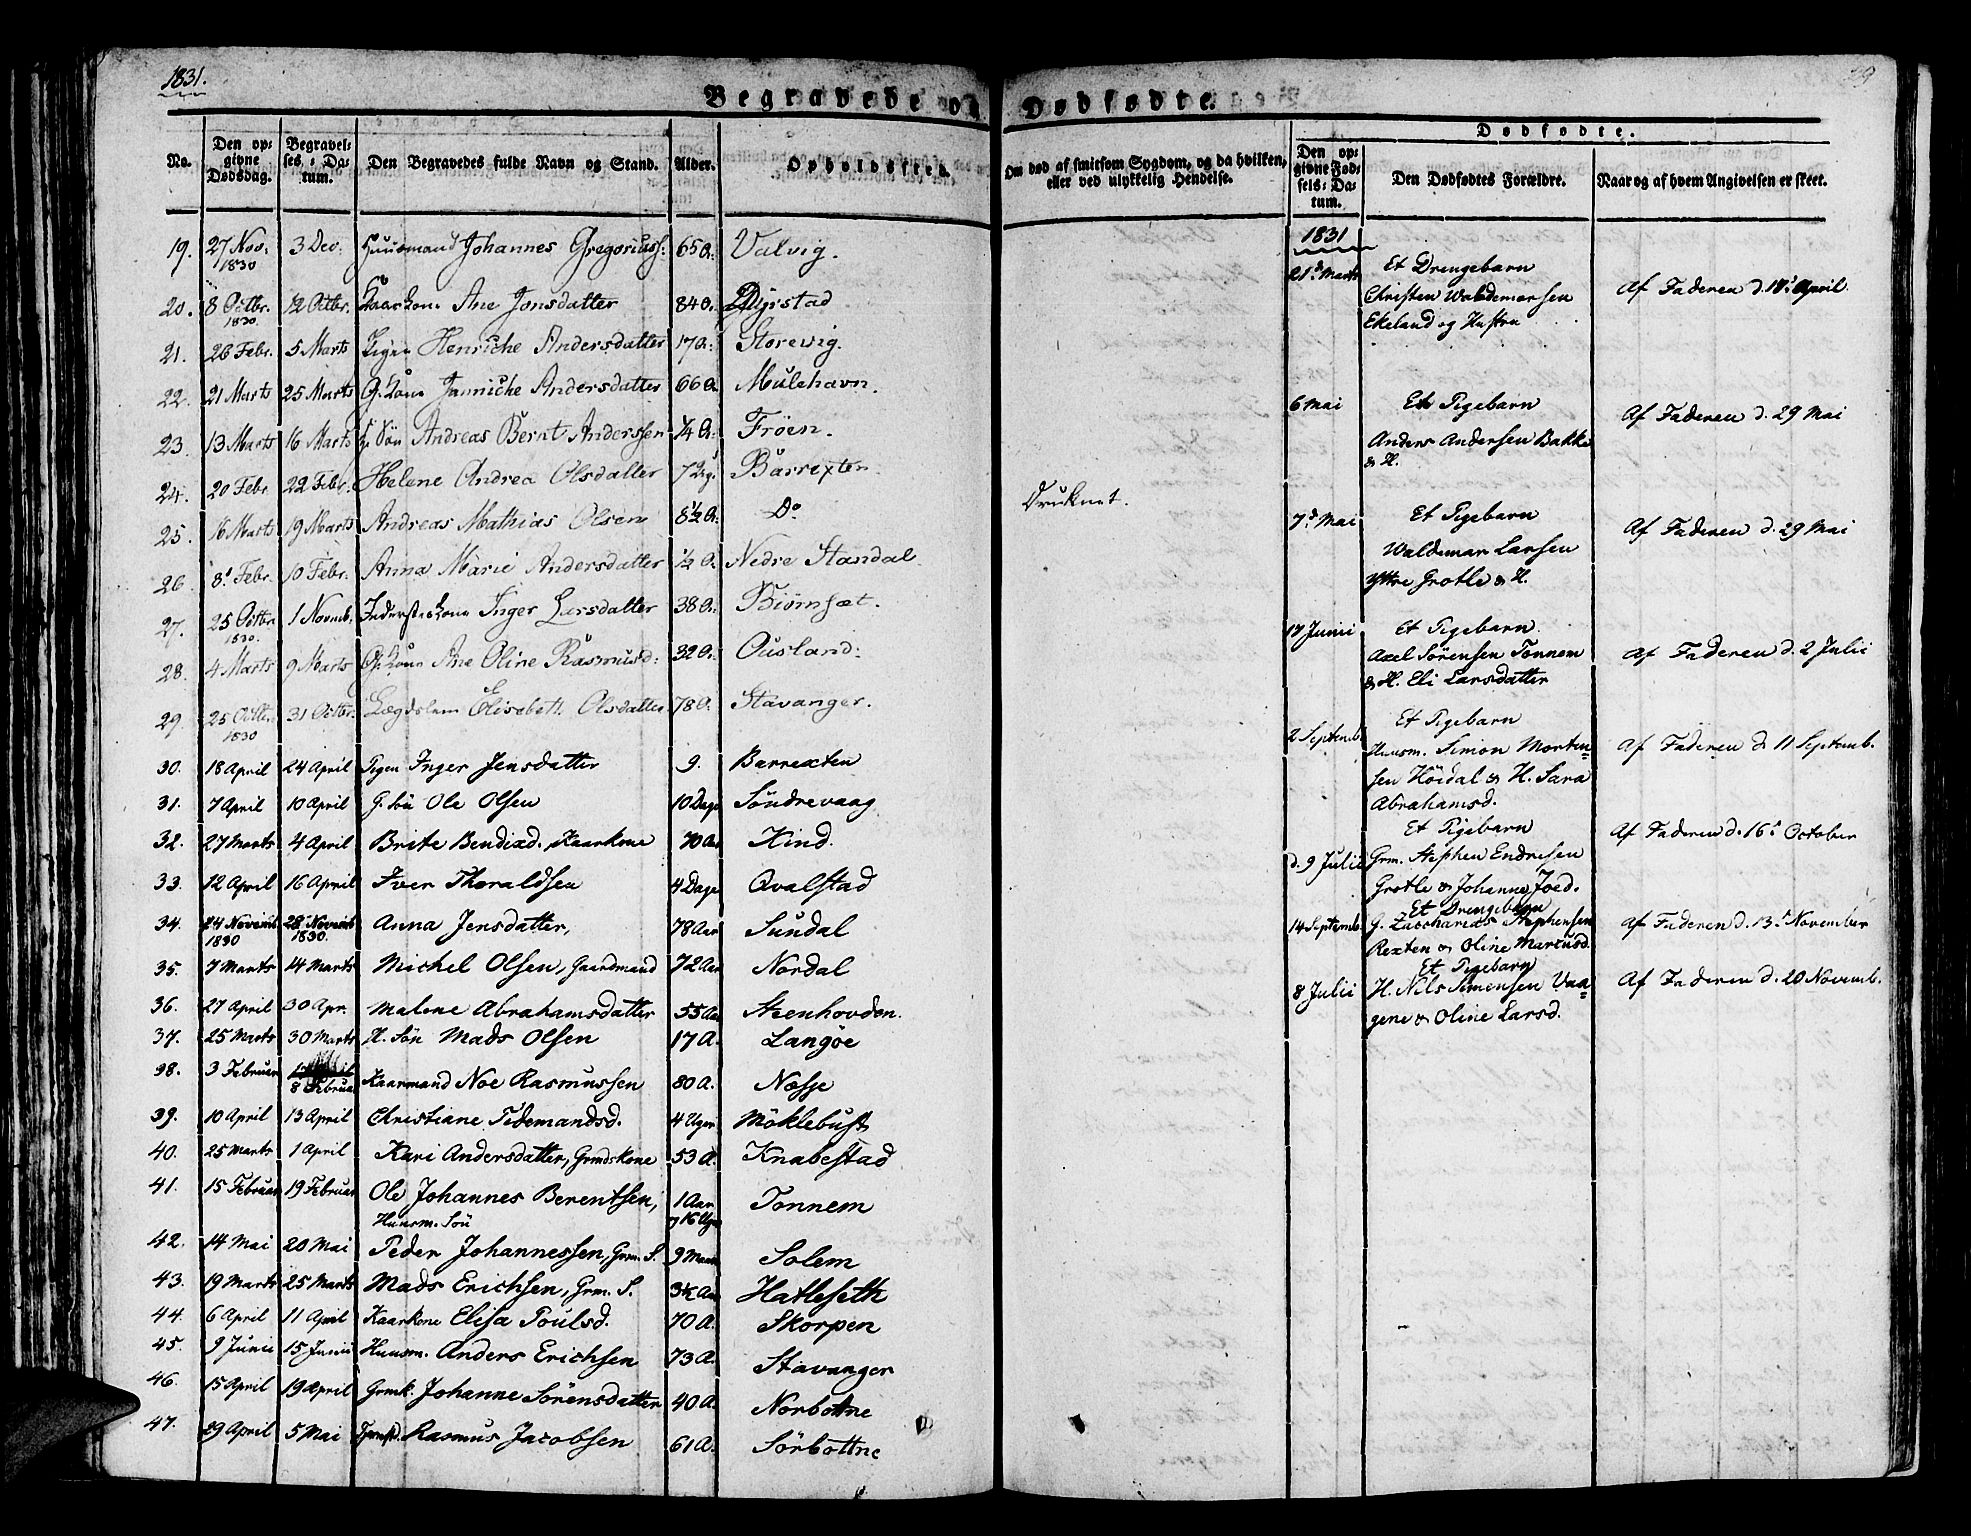 1831.
Begravede og Dødfødte.
No. Den opgivne Dødsdag. Begravelses-Datum. Den Begravedes fulde Navn og Stand. Alder. Opholdssted.
19. 27 Nov. 1830 3 Dec. Huusmand Johannes Gregoriuss: 65 A: Valvig.
20. 8 Octbr. 1830. 12 Octbr. Kaarkone Ane Jonsdatter 84 A. Dyrstad
21. 26 Febr. 5 Marts Pigen Henriche Andersdatter 17 A: Storevig.
22. 21 Marts 25 Marts G.kone Janniche Andersdatter 66 A. Mulehavn.
23. 13 Marts 16 Marts Søn Andreas Bernt Anderssen 1/4 A. Frøen.
24. 20 Febr. 22 Febr. Helene Andrea Olsdatter 7 Barrexten
25. 16 Marts 19 Marts Andreas Mathias Olsen 8 1/2 A. Do
26. 8. Febr. 10 Febr. Anna Marie Andersdatter 1/2 A. Nedre Standal
27. 25 Octbr 1830. 1 Novemb. Inderstekone Inger Larsdatter 38 A. Biørnsæt.
28. 4 Marts 9 Marts G.kone Ane Oline Rasmusd: 32 A. Ousland:
29. 25 Octbr. 1830 31 Octbr. Lægdslem Elisebeth Olsdatter 78 A. Stavanger.
30. 18 April 24 April Pigen Inger Jensdatter 9. Barrexten
31. 7 April 10 April G. Søn Ole Olsen 10 Dage Søndrevaag
32. 27 Marts 4 April Brite Bendixd. Kaarkone 70 Aar Kind.
33. 12 April 16 April Iver Thoraldsen 4 Dage Qvalstad
34. 24 Novemb 1830 28 Novemb 1830. Anna Jensdatter, 78 Aar Sundal
35. 7 Marts 14 Marts Michel Olsen, Gaardmand 72 Aar Nordal
36. 27 April 30 Apr. Malene Abrahamsdatter 55 Aar Steenhovden.
37. 25 Marts 30 Marts H. Søn Mads Olsen 17 A. Langøe
38. 3 Februar 8 Februar Kaarmand Noe Rasmussen 80 A. Næsse
39. 10 April 13 April Christiane Tidemandsd. 4 Uger Møklebust
40. 25 Marts 1 April Kari Andersdatter, Grmdskone 53 A. Knabestad
41. 15 Februar 19 Februar Ole Johannes Berentsen, Huusm. Søn 1 Aar og 16 Uger Tonnem
42. 14 Mai 20 Mai Peder Johannessen, Grm. S. 9 Maan Solem
43. 19 Marts 25 Marts Mads Erichsen, Grm. S. 3 1/2 Aar Hatleseth
44. 6 April 11 April Kaarkone Elisa Poulsd. 70 A. Skorpen
45. 9 Junii 15 Junii Huusm. Anders Erichsen 73 A. Stavanger
46. 15 April 19 April Grmk. Johanne Sørensdatter 40 A. Norbotne
47. 29 April 5 Mai Rasmus Jacobsen 61 A. Sørbottne
Om død af smitsom Sygdom, og da hvilken, eller ved ulykkelig Hendelse.
Druknet.
Dødfødte.
Den opgivne Fødsels-Datum. Den Dødfødtes Forældre. Naar og af hvem Angivelsen er skeet.
1831
21. Marts Et Drengebarn
Christen Waldemarsen
Ekeland og Hustru
Af Faderen d. 17. April.
6 Mai Et Pigebarn
Anders Andersen Bakke
& H.
Af Faderen d. 29 Mai
7. Mai Et Pigebarn
Waldemar Larsen
Yttre Grotle & H.
Af Faderen d. 29 Mai
17 Junii Et Pigebarn
Axel Sørensen Tonnem
& H. Eli Larsdatter
Af Faderen d. 2 Julii
2 Septemb. Et Pigebarn
Huusm. Simon Morten-
sen Høidal & H. Sara
Abrahamsd.
Af Faderen d. 11 Septemb.
d. 9 Julii Et Pigebarn
Grm. Stephen Endresen
Grotle & Johanne Joed.
Af Faderen d. 16. October
14 Septemb. Et Drengebarn
G. Zacharias Stephensen
Rexten & Oline Marcusd.
Af Faderen d. 13. November
8 Julii Et Pigebarn
H. Nils Simensen Vaa-
gene & Oline Larsd.
Af Faderen d. 20 Novemb.